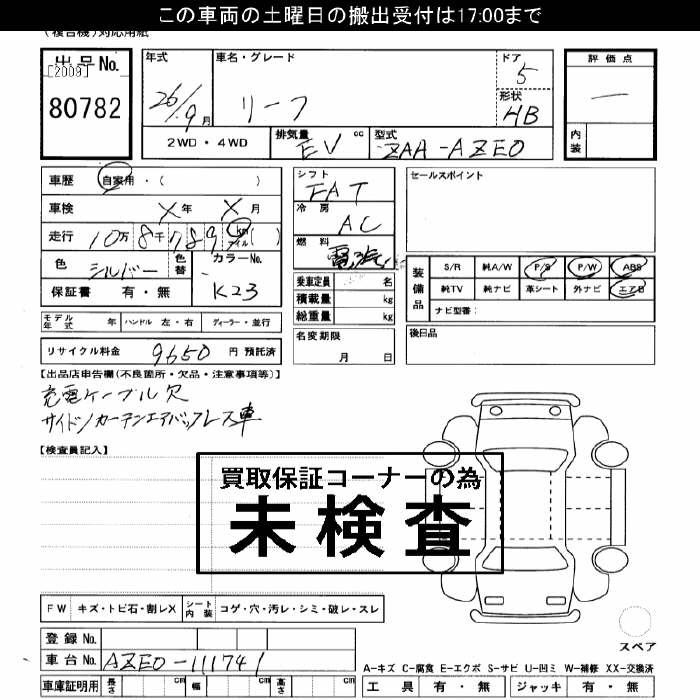 この車両の土曜日の搬出受付は17:00まで
(複合機)対応用紙
出品No.
[2009]
80782
年式
26/9月
車名・グレード
リーフ
ドア
5
形状
HB
評価点
―
内装
2WD・4WD
排気量
EV
cc
型式
ZAA-AZE0
車歴
自家用・( )
車検
X年 X月
走行
10万8千789km
マイル( )
色
シルバー
色替
カラーNo.
K23
保証書 有・無
シフト
FAT
冷房
AC
燃料
乗車定員 名
積載量 kg
総重量 kg
セールスポイント
装備品
S/R 純A/W P/S P/W ABS
純TV 純ナビ 革シート 外ナビ エアB
ナビ型番:
モデル年式 年 ハンドル 左・右 ディーラー・並行
名変期限
月 日
後日品
リサイクル料金 9650 円 預託済
【出品店申告欄(不良箇所・欠品・注意事項等)】
充電ケーブル欠
サイド/カーテンエアバッグレス車
【検査員記入】
買取保証コーナーの為
未検査
FW キズ・トビ石・割レX シート内装 コゲ・穴・汚レ・シミ・破レ・スレ
登録No.
車台No. AZE0-111741
車庫証明用 長さ cm 幅 cm 高さ cm
スペア
A-キズ C-腐食 E-エクボ S-サビ U-凹ミ W-補修 XX-交換済
工具 有・無 ジャッキ 有・無